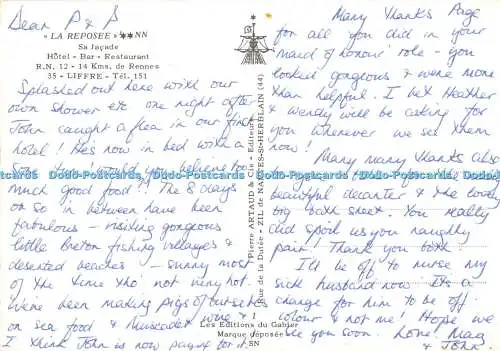 Dear P & S
« LA REPOSEE » ★★NN
Sa façade
Hôtel - Bar - Restaurant
R.N. 12 - 14 Kms. de Rennes
35 - LIFFRE - Tél. 151
Splashed out here with our
own shower etc one night after
John caught a flea in our first
hotel! He's now in bed with a
much good food!! The 8 days
or so in between have been
fabulous - visiting gorgeous
little Breton fishing villages &
deserted beaches - sunny most
of the time tho' not very hot.
We've been making pigs of ourselves
on sea food & Muscadet wine &
I think John is now paying for it.
Pierre ARTAUD & Cie - Editeurs
Rue de la Dutée - ZIL de NANTES-St-HERBLAIN (44)
Les Editions du Gabier
Marque déposée
SN
Many Thanks Page
for all you did in your
maid of honour role - you
looked gorgeous & were more
than helpful. I bet Heather
& Wendy will be asking for
you whenever we see them
now!
Many many thanks also
beautiful decanter & the lovely
big bath sheet. You really
did spoil us you naughty
pair! Thank you both.
I'll be off to nurse my
sick husband now. Its a
change for him to be off
colour & not me! Hope we
see you soon. Love Mag
& John
Dodo-Postcards Dodo-Postcards Dodo-Postcards Dodo-Postcards Dodo-Postcards